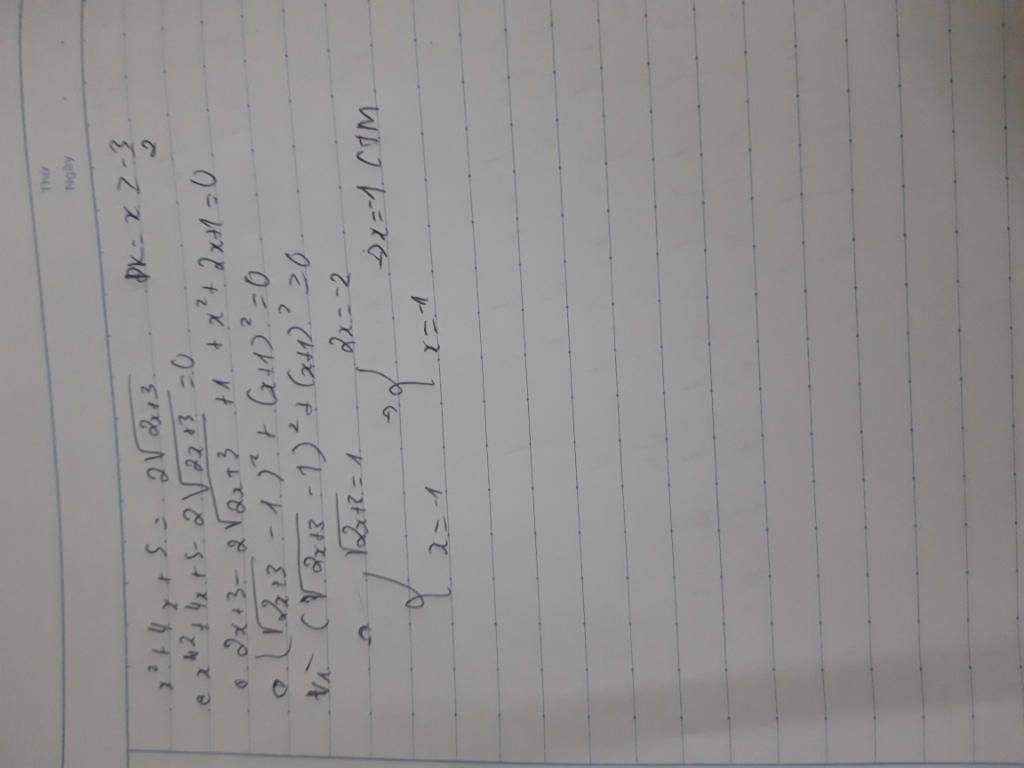 Thứ
Ngày
x² + 4x + 5 = 2√(2x+3) ĐK: x ≥ -3/2
x² + 4x + 5 - 2√(2x+3) = 0
2x+3 - 2√(2x+3) + 1 + x² + 2x + 1 = 0
(√(2x+3) - 1)² + (x+1)² = 0
(√(2x+3) - 1)² + (x+1)² ≥ 0
{ √(2x+3) = 1 → { 2x = -2 → x = -1 (TM
x = -1 x = -1